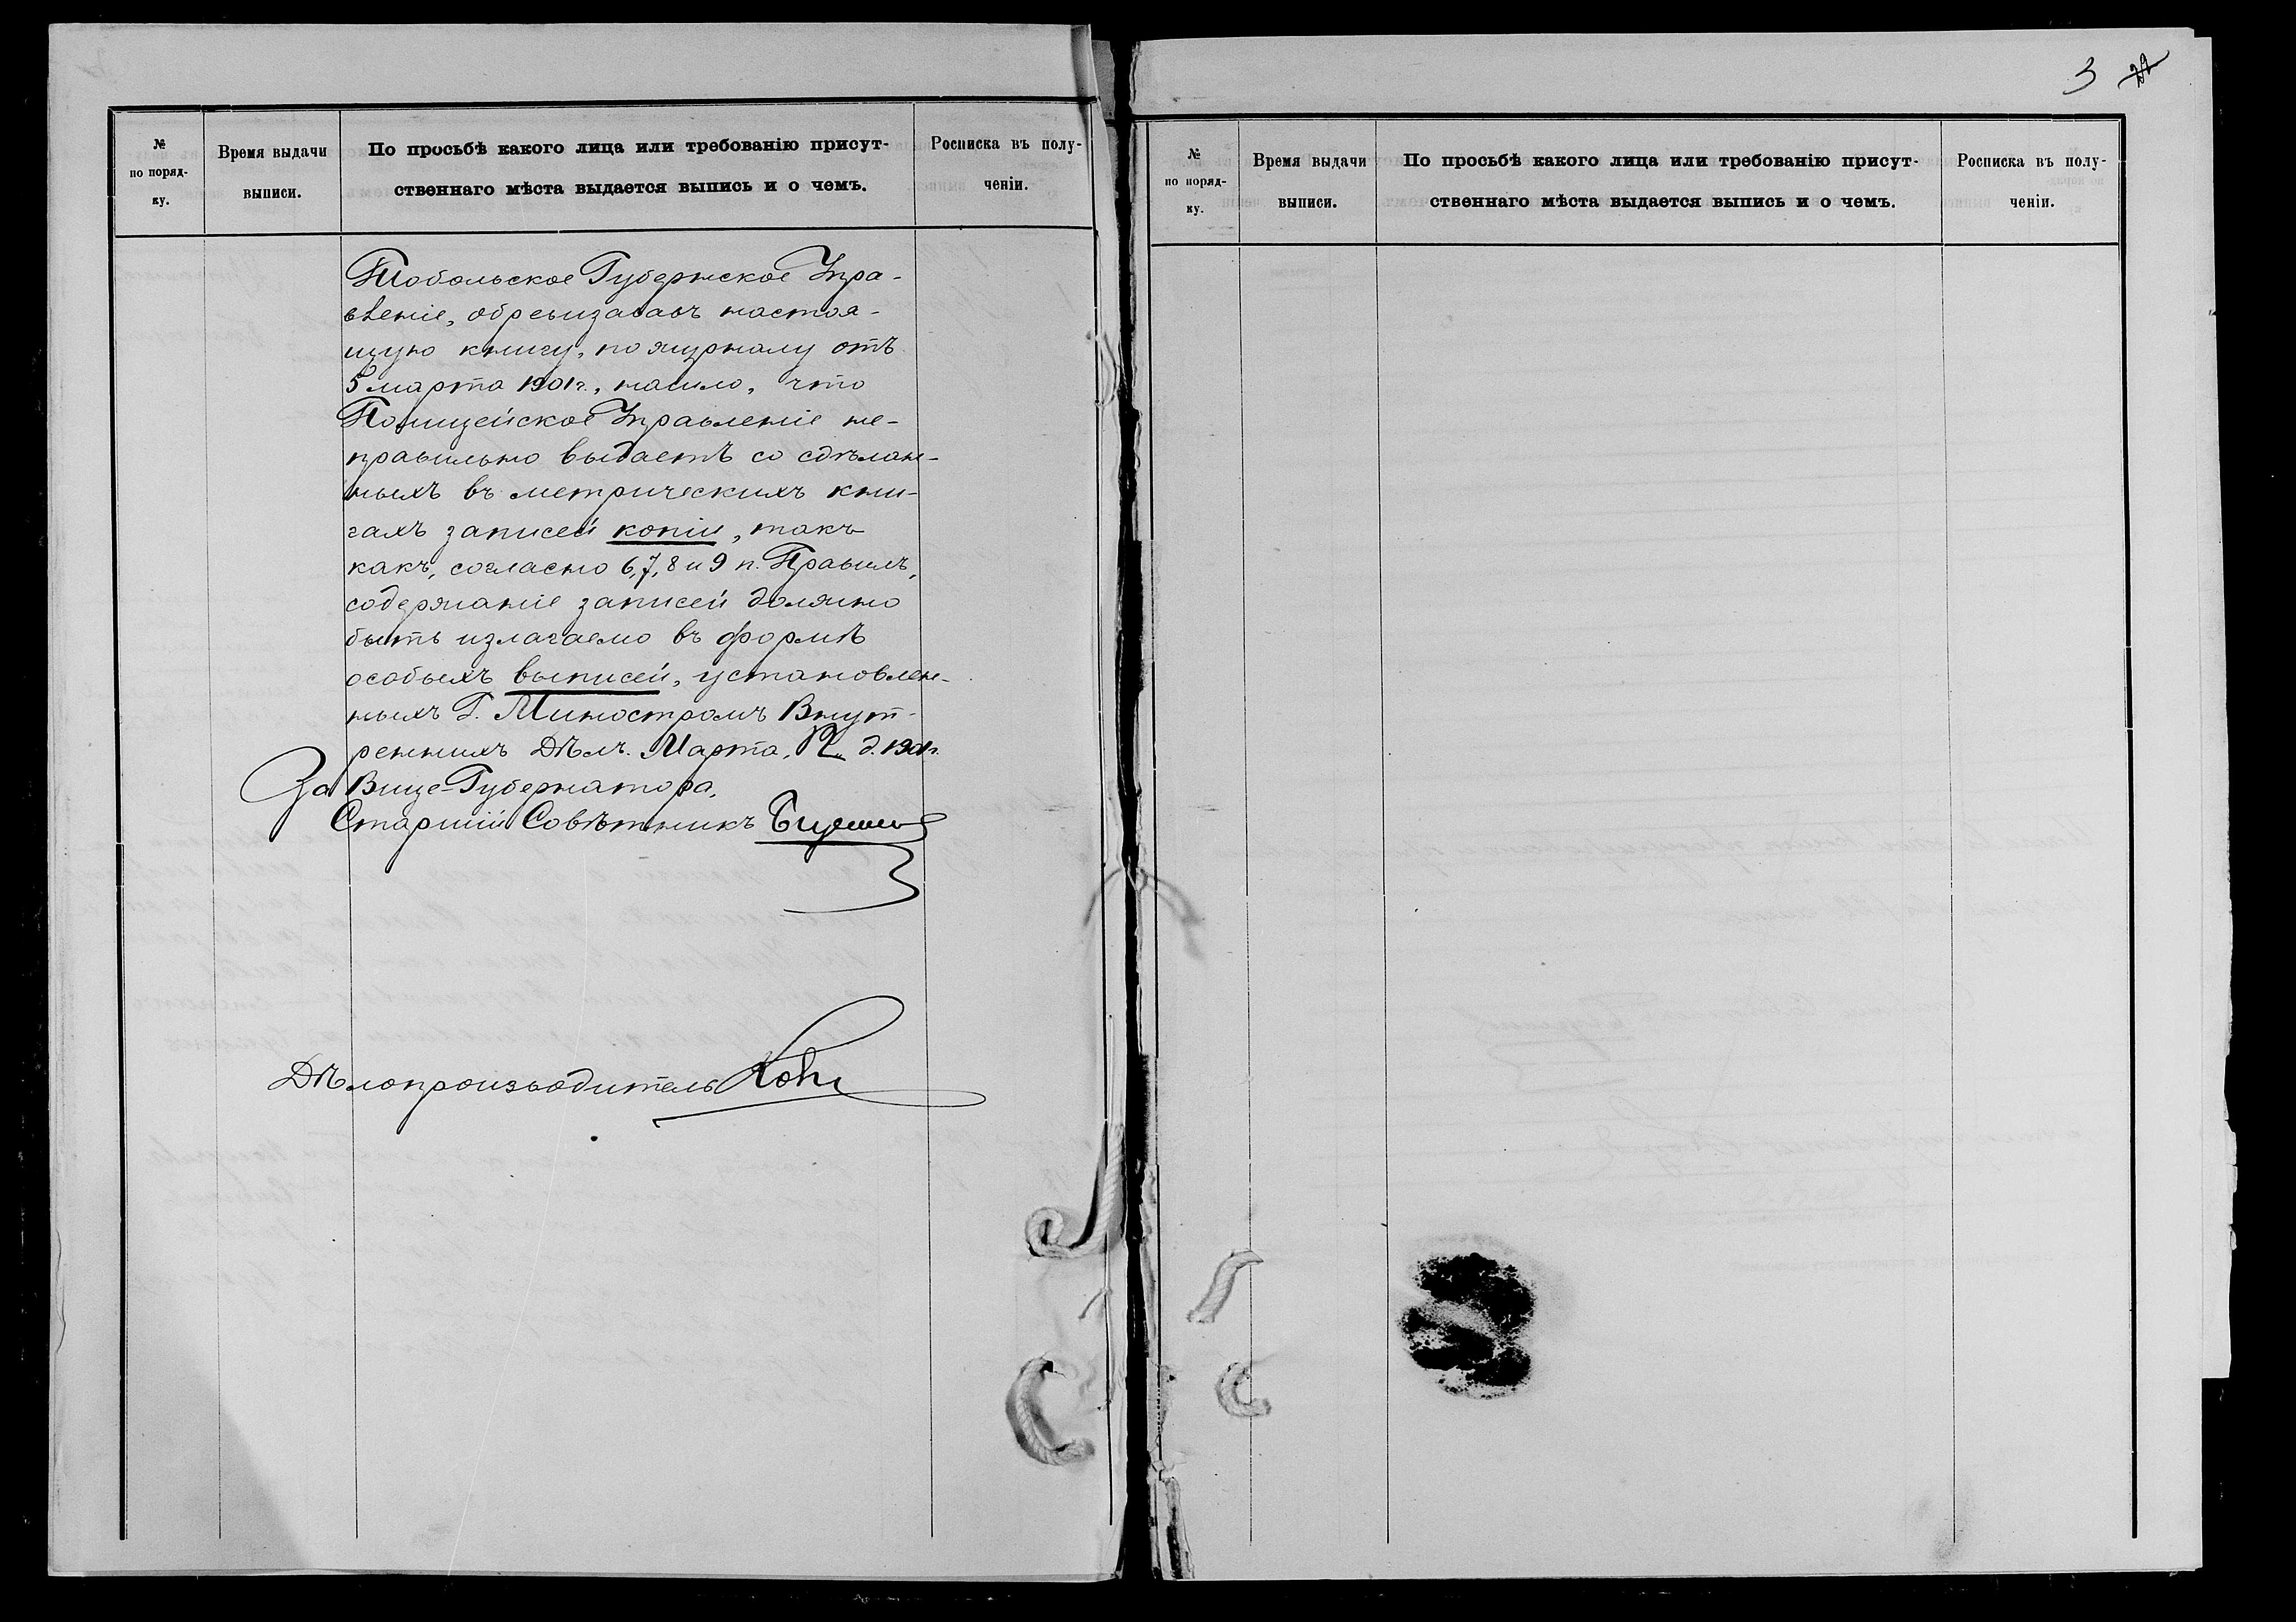 №
по поряд-
ку.
Время выдачи
выписи.
По просьбѣ какого лица или требованію присут-
ственнаго мѣста выдается выпись и о чемъ.
Росписка въ полу-
ченіи.
Тобольское Губернское Упра-
вленіе, обревизавъ настоя-
щую книгу, по журналу отъ
5 марта 1901 г., нашло, что
Полицейское Управленіе не-
правильно выдаетъ со сдѣлан-
ныхъ въ метрическихъ кни-
гахъ записей копіи, такъ
какъ, согласно 6, 7, 8 и 9 п. Правилъ,
содержаніе записей должно
быть излагаемо въ формѣ
особыхъ выписей, установлен-
ныхъ Г. Министромъ Внут-
реннихъ Дѣлъ. Марта, д. 1901 г.
За Вице-Губернатора,
Старшій Совѣтникъ
Дѣлопроизводитель
3 22
№
по поряд-
ку.
Время выдачи
выписи.
По просьбѣ какого лица или требованію присут-
ственнаго мѣста выдается выпись и о чемъ.
Росписка въ полу-
ченіи.